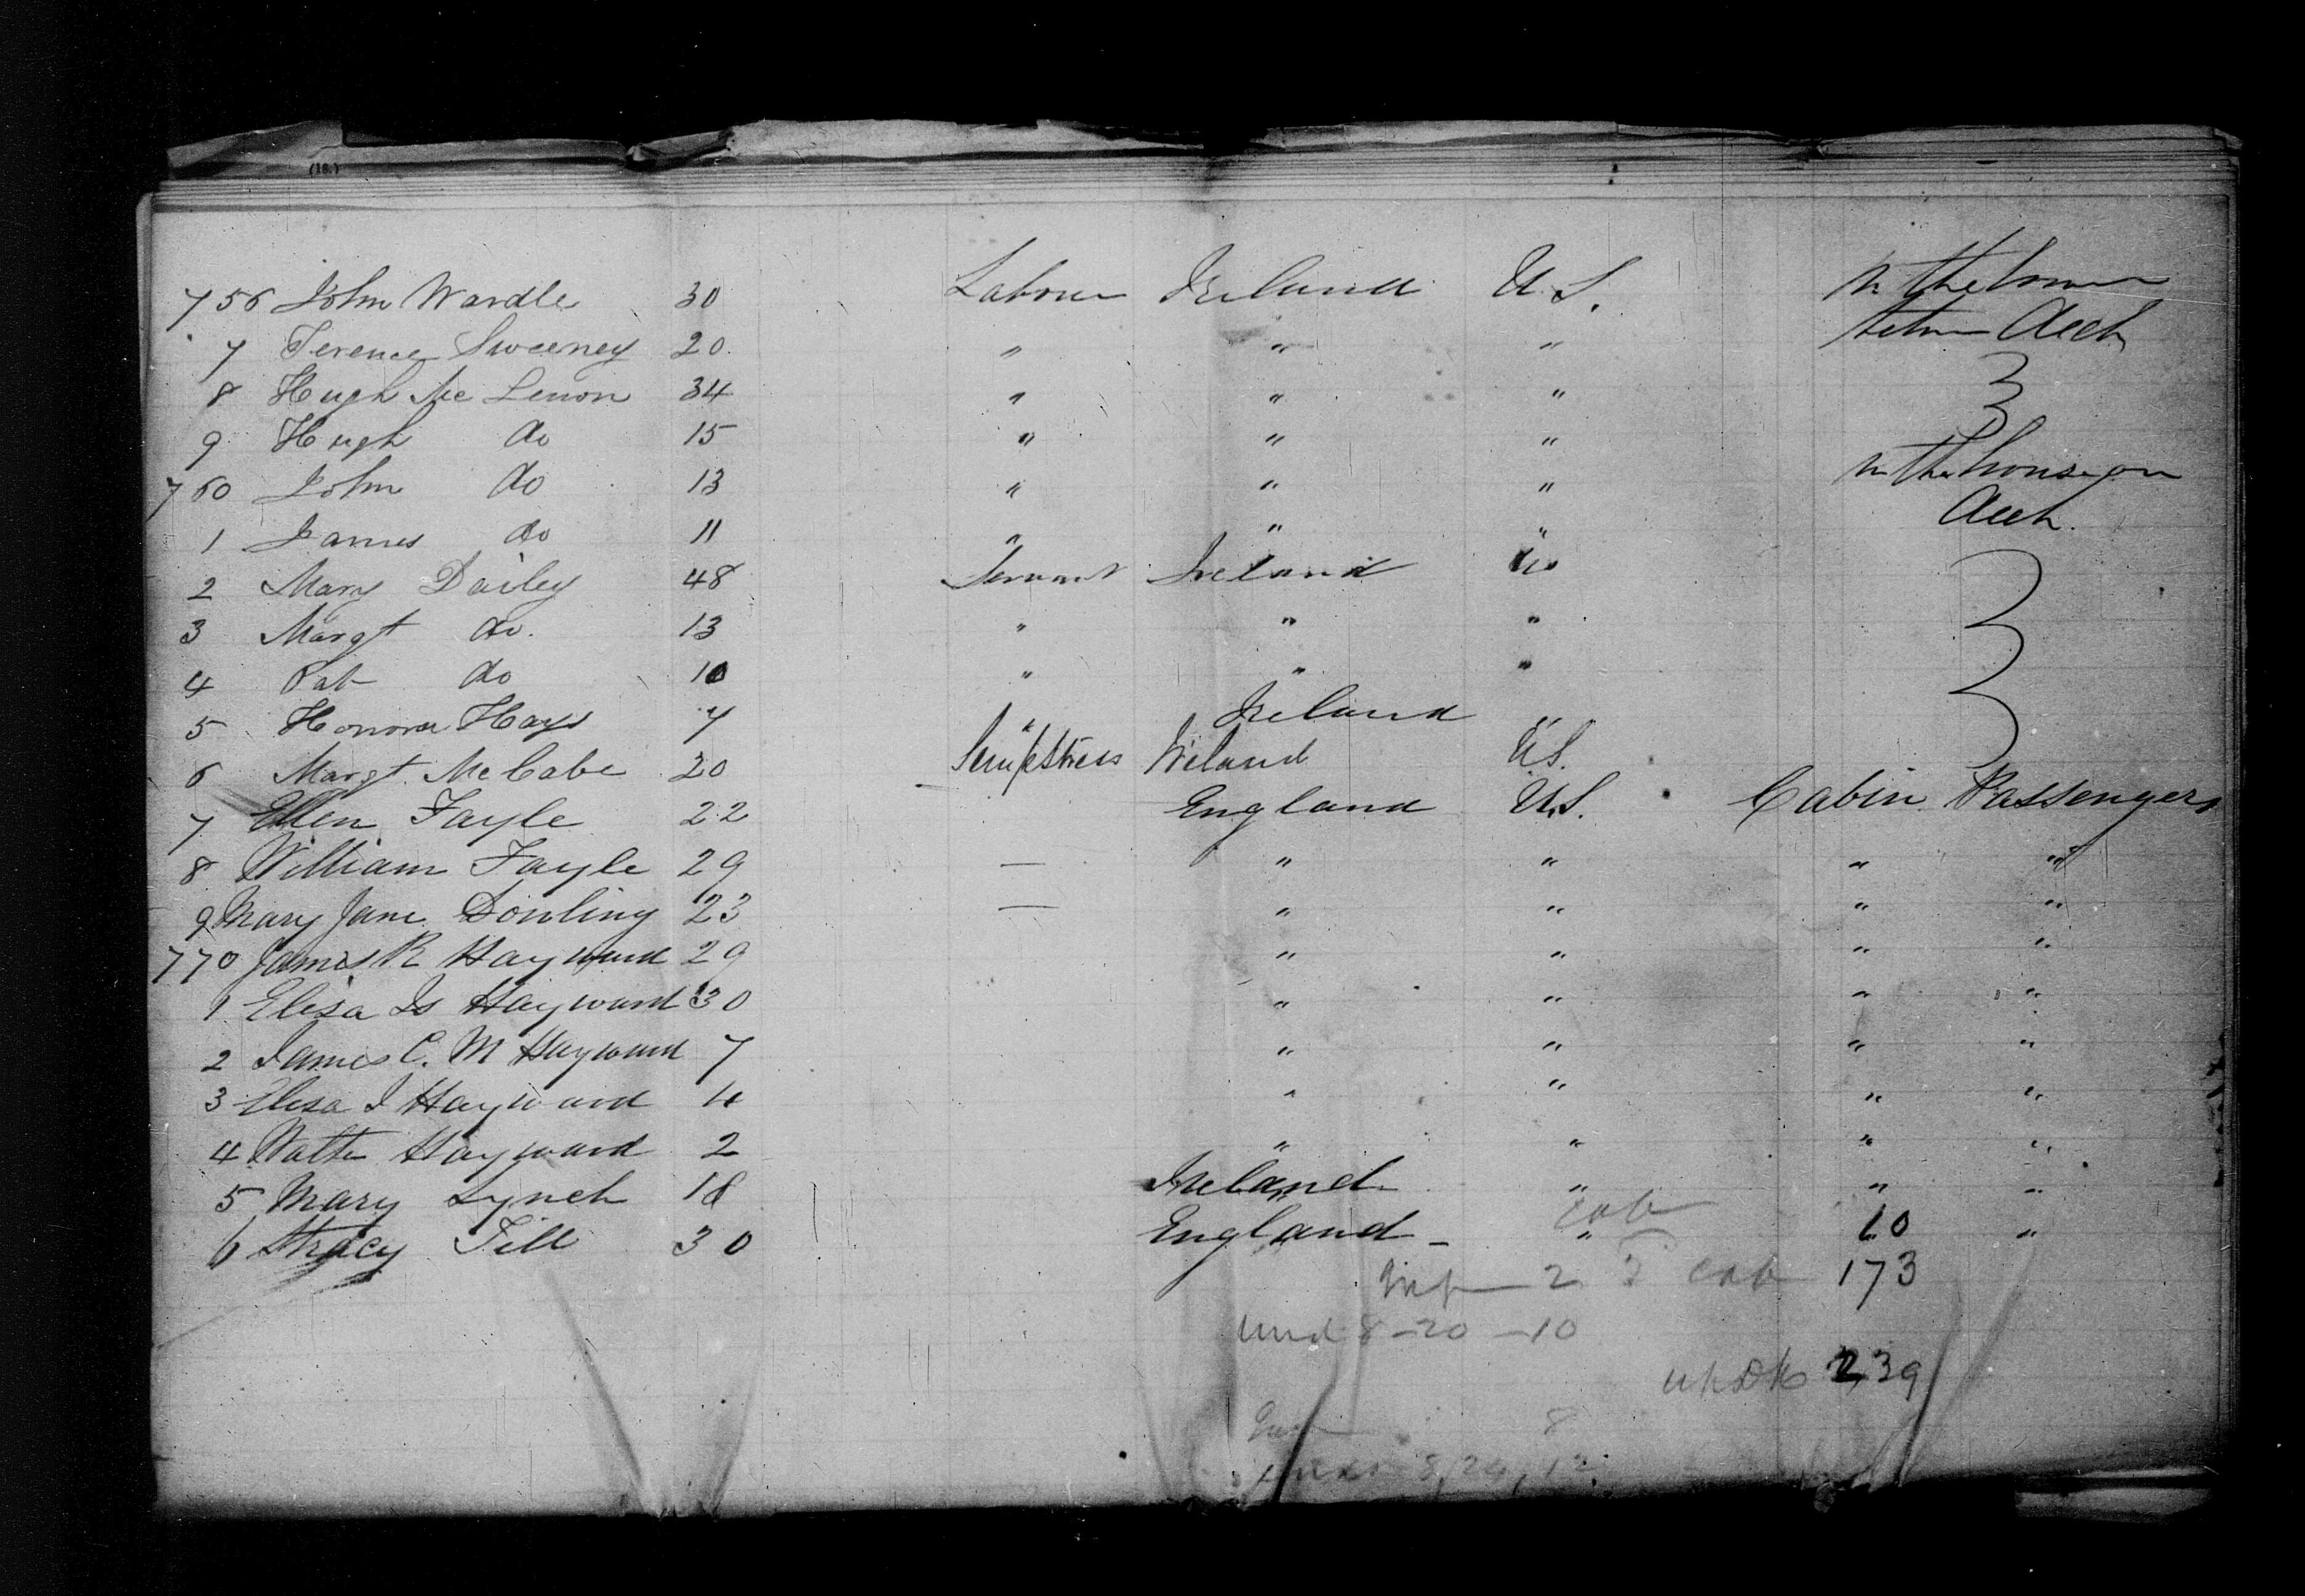 (18.)
756 John Wardle 30 Labourer Ireland U.S. In the lower
7 Terence Sweeney 20 " " " between Deck
8 Hugh Mc Lenon 34 " " "
9 Hugh do 15 " " "
760 John do 13 " " " In the house on
1 James do 11 " " " Deck.
2 Mary Dailey 48 Servant Ireland US
3 Margt do. 13 " " "
4 Pat do 10 " " "
5 Honora Hays 7 " Ireland "
6 Margt. McCabe 20 Sempstress Ireland U.S.
7 Ellen Fayle 22 England U.S. Cabin Passengers
8 William Fayle 29 — " " " "
9 Mary Jane Dowling 23 — " " " "
770 James R Hayward 29 " " " "
1 Elisa Is Hayward 30 " " " "
2 James C. M Hayward 7 " " " "
3 Elisa I Hayward 4 " " " "
4 Walter Hayward 2 " " " "
5 Mary Lynch 18 Ireland " " "
6 Stracy Till 30 England " cab 10 "
Inf — 2 cab 173
und 8 - 20 - 10
up DK 239
Inf 8
12